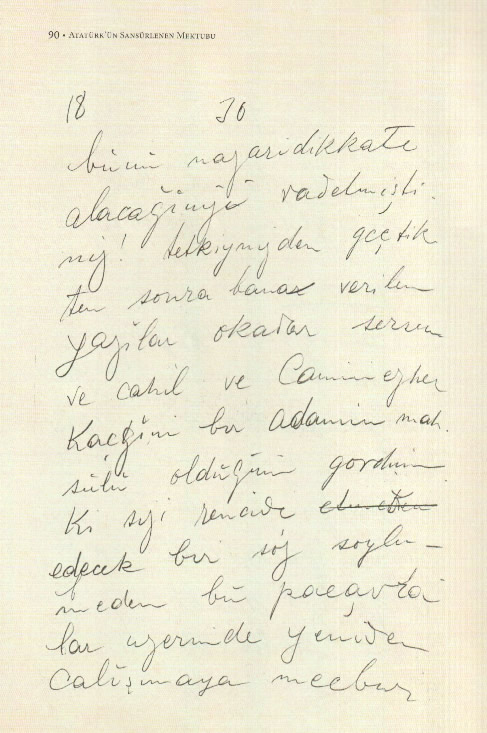 90 • Atatürk'ün Sansürlenen Mektubu
18 30
bunu nazaridikkate
alacağınızı vadetmişti.
niz! tetkiynizden geçtik
ten sonra bana verilen
yazılar okadar sersem
ve cahil ve
bir adamın mah.
sulü olduğunu gördüm
ki sizi rencide etmeden
edecek bir söz söyle–
meden bu paçavra
lar uzerinde yeniden
Calışmaya mecbur